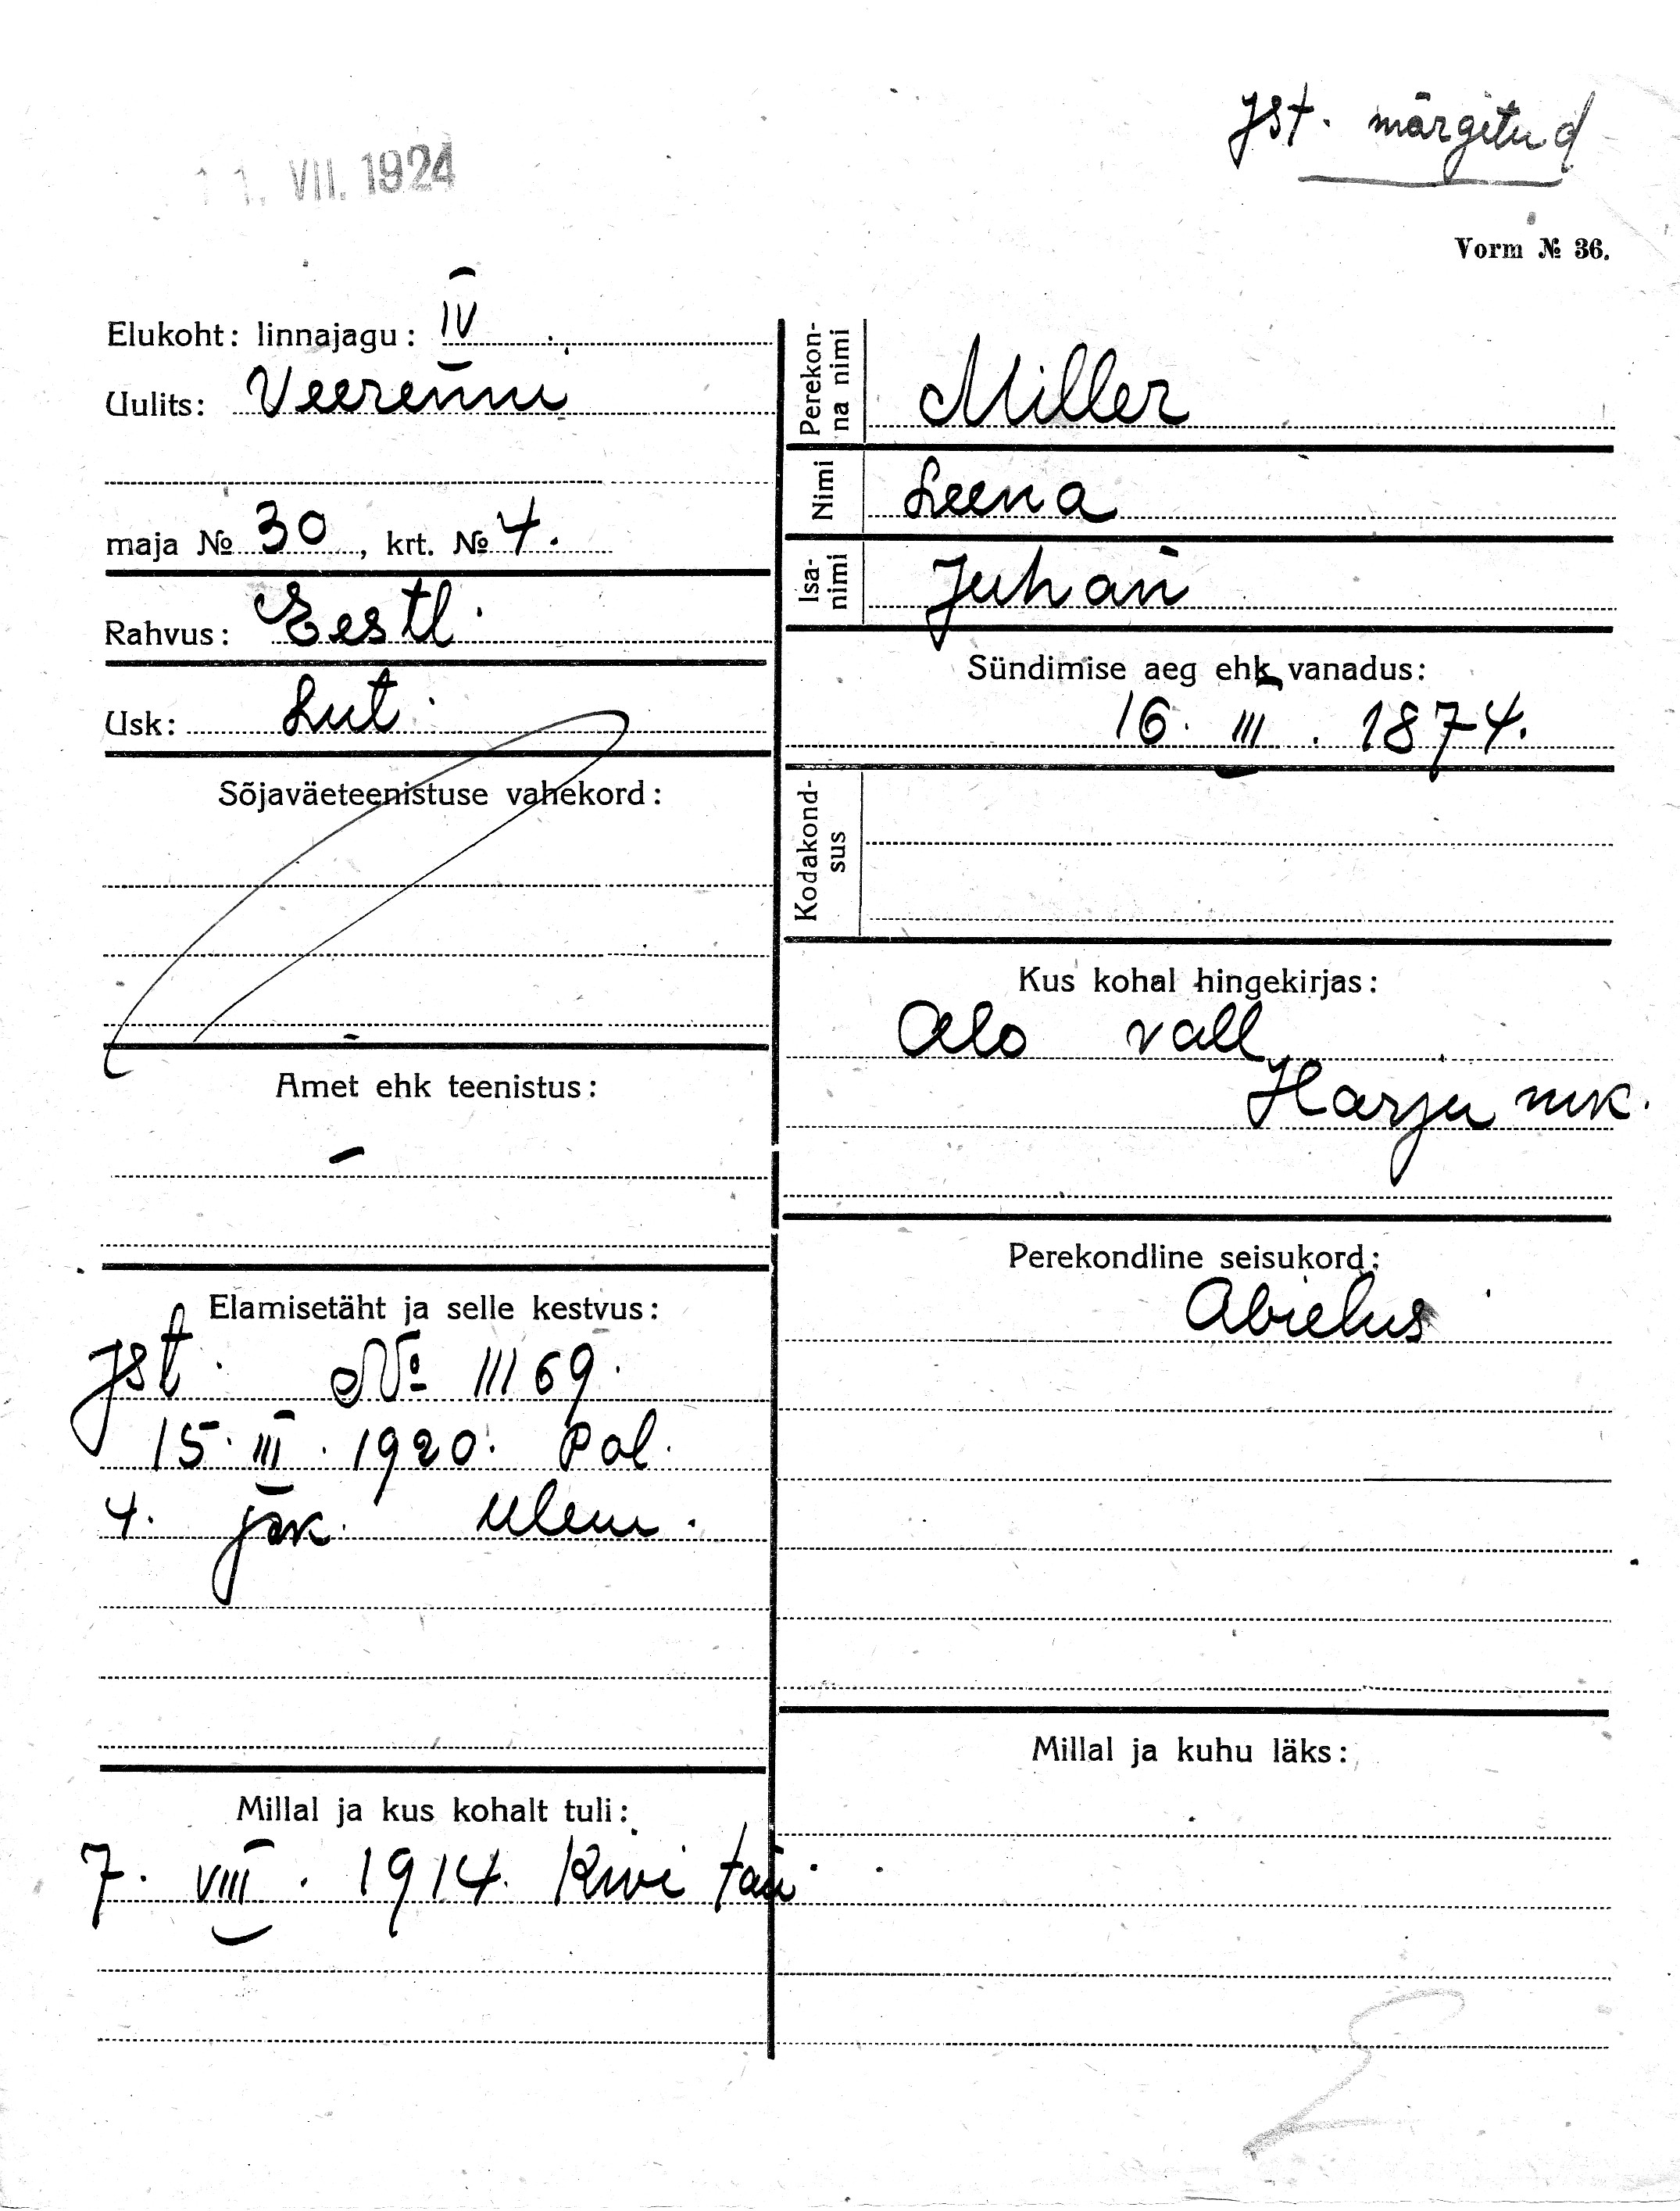 Jst. märgitud
11. VII. 1924
Vorm № 36.
Elukoht: linnajagu: IV
Uulits: Veerenni
maja № 30, krt. № 4.
Rahvus: Eestl.
Usk: Lut.
Sõjaväeteenistuse vahekord:
Amet ehk teenistus:
–
Elamisetäht ja selle kestvus:
Jst. № 11169.
15. III. 1920. Pol.
4. jsk. ülem.
Millal ja kus kohalt tuli:
7. VIII. 1914. Kivi tän.
Perekon-
na nimi Miller
Nimi Leena
Isa-
nimi Juhan
Sündimise aeg ehk vanadus:
16. III. 1874.
Kodakond-
sus
Kus kohal hingekirjas:
Alo vall
Harju mk.
Perekondline seisukord:
Abielus
Millal ja kuhu läks: